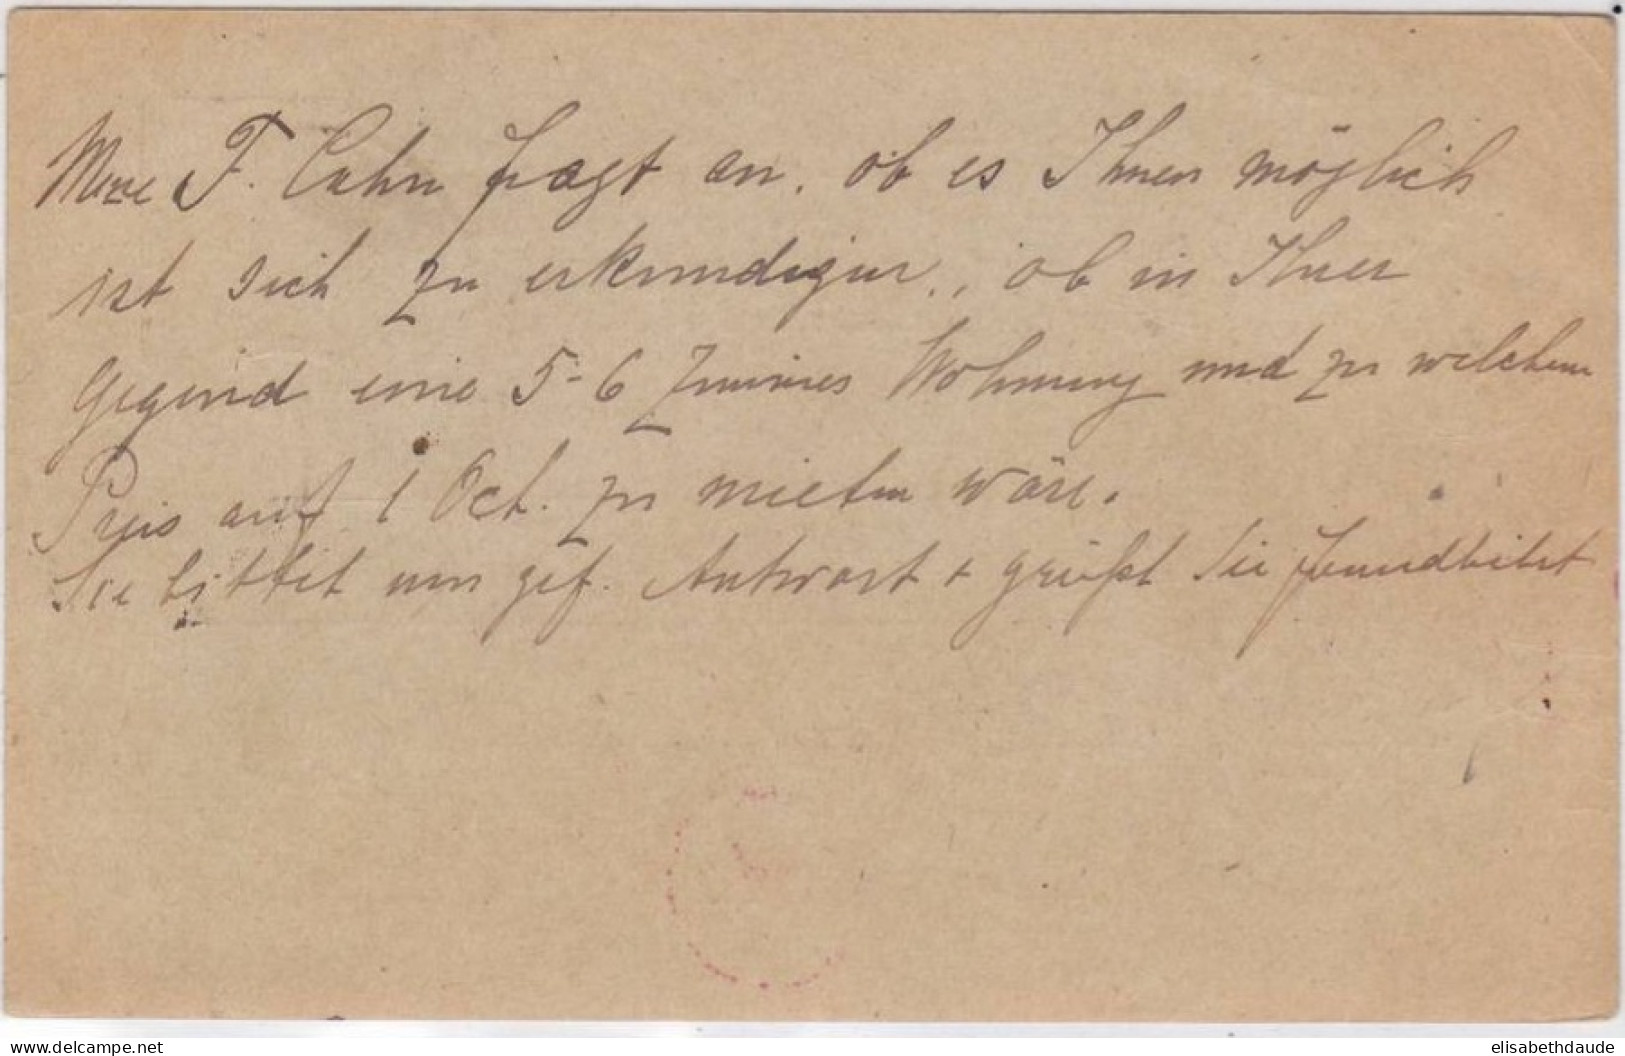 Mme F. Cahn fragt an, ob es Ihnen möglich
ist sich zu erkundigen, ob in Ihrer
Gegend eine 5-6 Zimmer Wohnung und zu welchem
Preis auf 1 Oct. zu mieten wäre.
Sie bittet um gef. Antwort + grüßt Sie freundlichst
www.delcampe.net
elisabethdaude